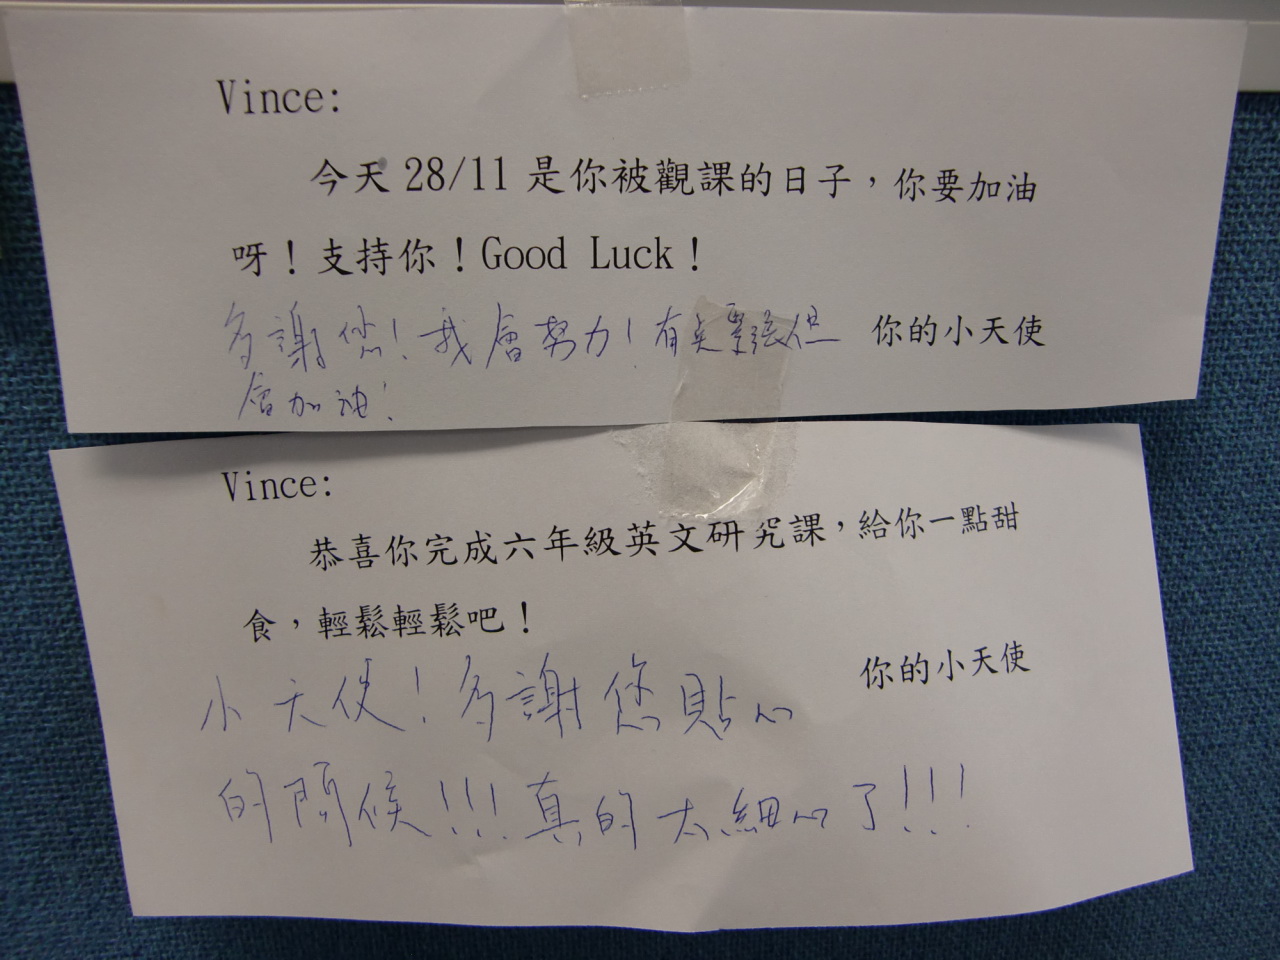 Vince:
今天 28/11 是你被觀課的日子，你要加油
呀！支持你！Good Luck！
多謝您！我會努力！有点緊張但
你的小天使
會加油！
Vince:
恭喜你完成六年級英文研究課，給你一點甜
食，輕鬆輕鬆吧！
你的小天使
小天使！多謝您貼心
的問候!!!真的太細心了!!!